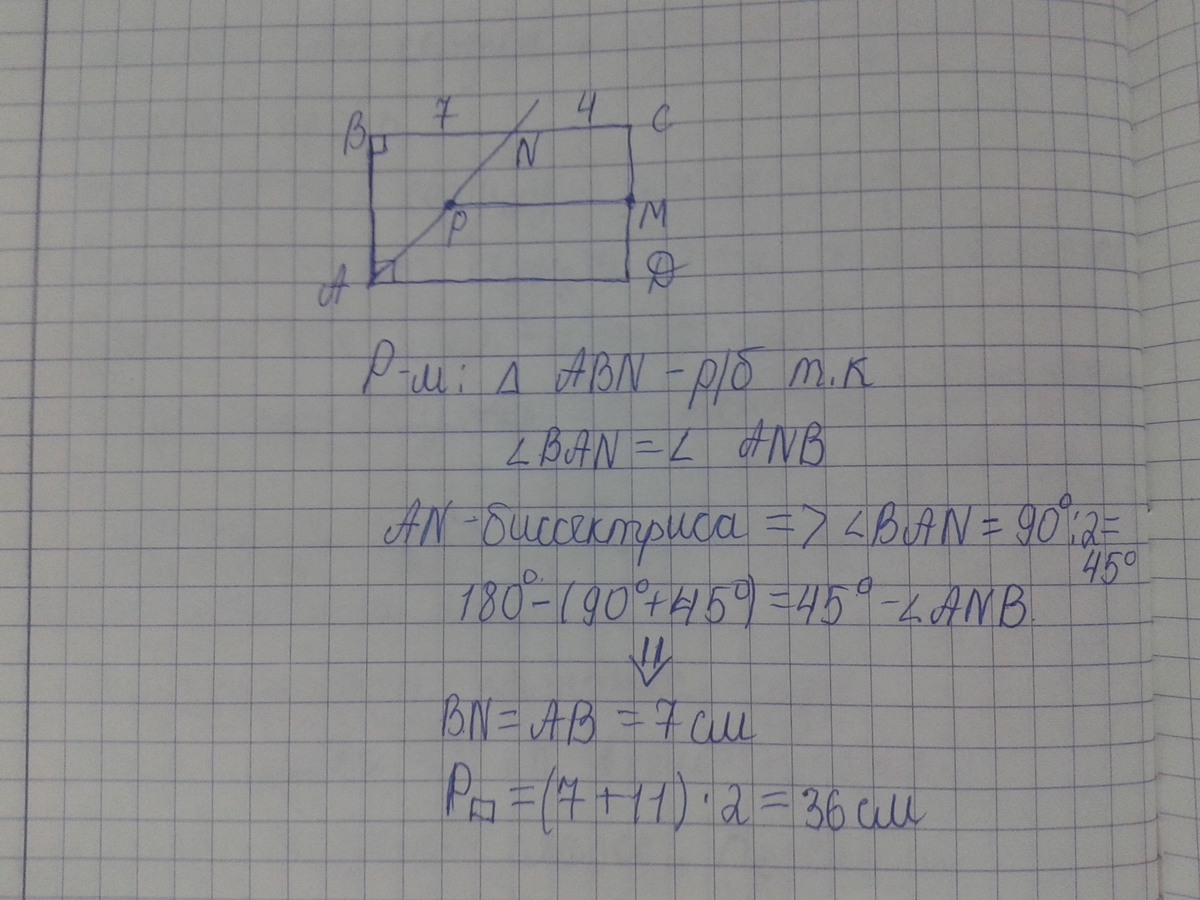 7 4
B N C
P M
A D
Р-м: △ ABN – р/б т.к
∠BAN = ∠ ANB
AN – биссектриса => ∠BAN = 90° : 2 =
45°
180° – (90° + 45°) = 45° – ∠ANB.
⇓
BN = AB = 7 см
P▭ = (7 + 11) · 2 = 36 см